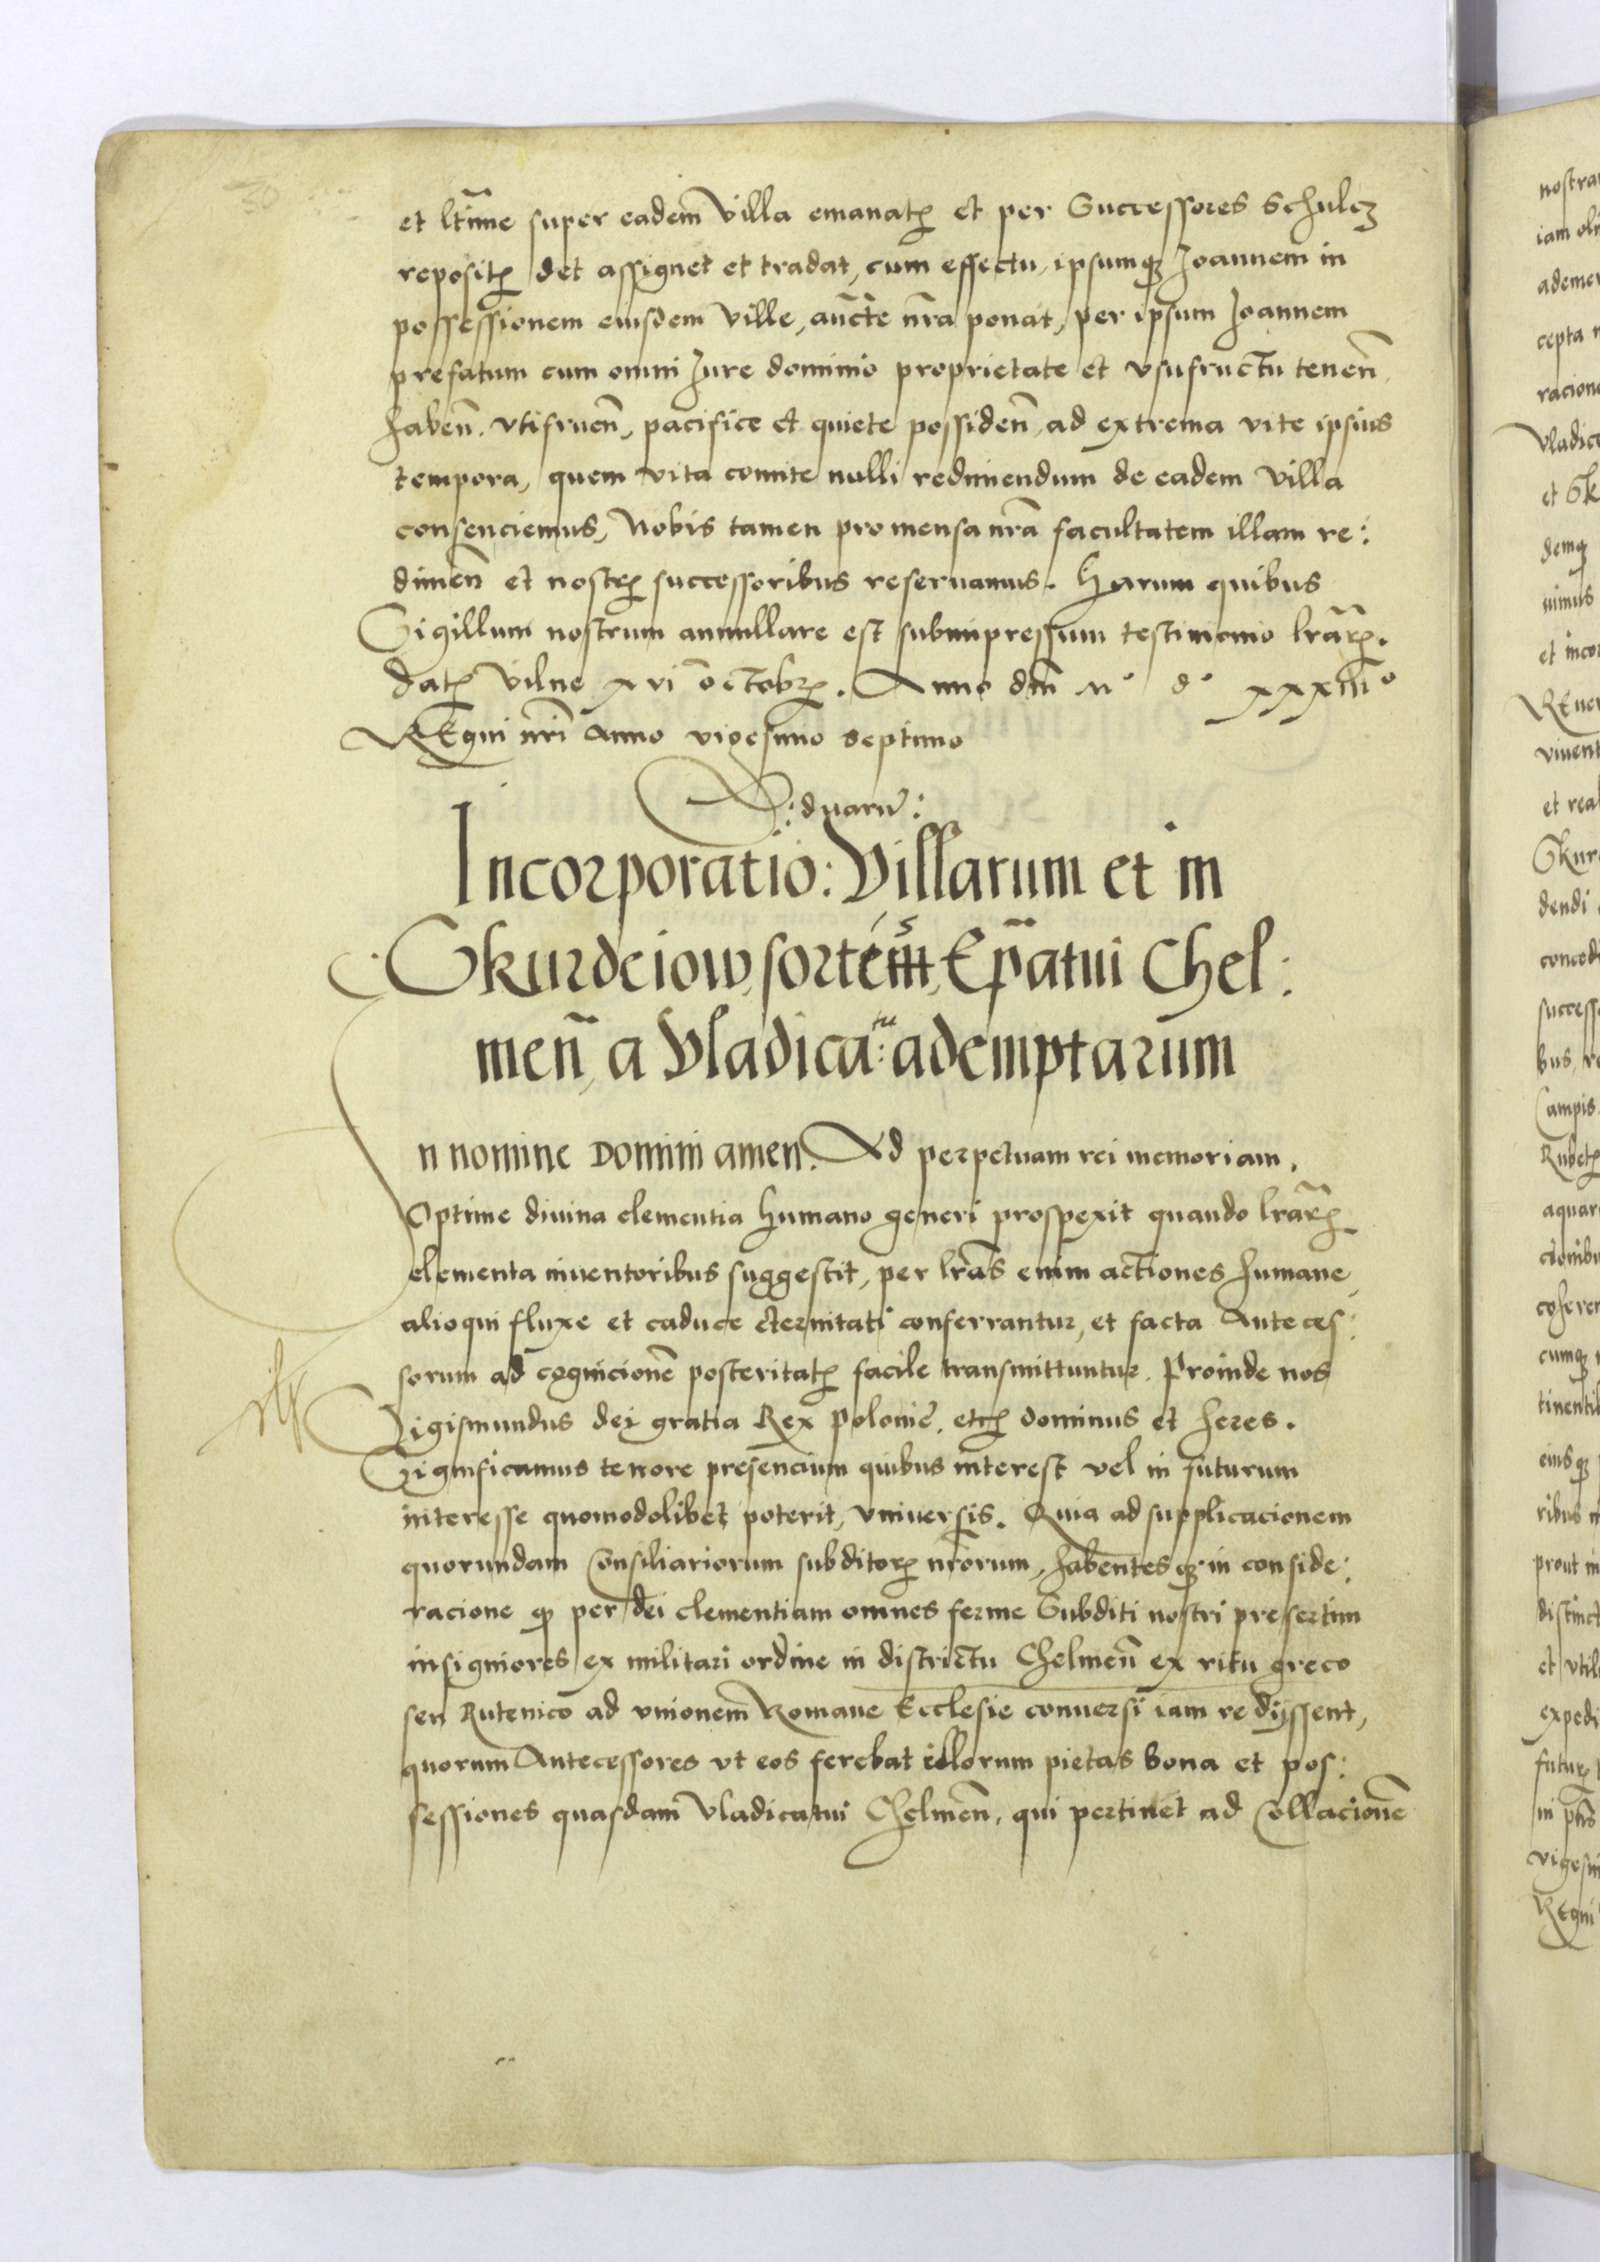 et ltīme super eadem Villa emanatꝝ et per Successores Schulcz
repositꝝ det assignet et tradat, cum effectu, ipsumqꝫ Joannem in
possessionem eiusdem Ville, auc̄te nr̄a ponat, per ipsum Joannem
prefatum cum omni Jure dominio proprietate et vsufructu tenen̄
haben̄ vtifruen̄, pacifice et quiete possiden̄, ad extrema vite ipsius
tempora, quem vita comite nulli redimendum de eadem Villa
consenciemus, Nobis tamen pro mensa nr̄a facultatem illam re:
dimen̄ et nostrꝝ successoribus reseruamus. Harum quibus
Sigillum nostrum annullare est subimpressum testimonio lr̄arꝝ.
datꝝ Vilne xvi octobrꝝ. Anno dn̄i Mº dº xxxiiiº
REgni nr̄i Anno vigesimo septimo
:duarū:
Incorporatio: Villarum et in
Skurdeiow, sortem̄, Ep̄atui Chel:
men̄, a Vladica:tu ademptarum
n nomine Domini amen. Ad perpetuam rei memoriam.
Optime diuina clementia humano generi prospexit quando lr̄arꝝ
elementa inuentoribus suggestit, per lr̄as enim actiones humane,
alioqui fluxe et caduce eternitati conferrantur, et facta Anteces:
sorum ad cognicionē posteritatꝝ facile transmittuntur. Proinde nos
Sigismundus dei gratia Rex Polonie. etcꝝ dominus et heres.
Significamus tenore presencium quibus interest vel in futurum
interesse quomodolibet poterit, vniuersis. Quia ad supplicacionem
quorundam Consiliariorum subditorꝝ nr̄orum, habentesqꝫ in conside:
racione qꝫ per dei clementiam omnes ferme Subditi nostri presertim
insigniores ex militari ordine in districtu Chelmen̄ ex ritu greco
seu Rutenico ad vnionem Romane Ecclesie conuersi iam redijssent,
quorum Antecessores vt eos ferebat illorum pietas bona et pos:
sessiones quasdam Vladicatui Chelmen̄, qui pertinet ad Collacionē